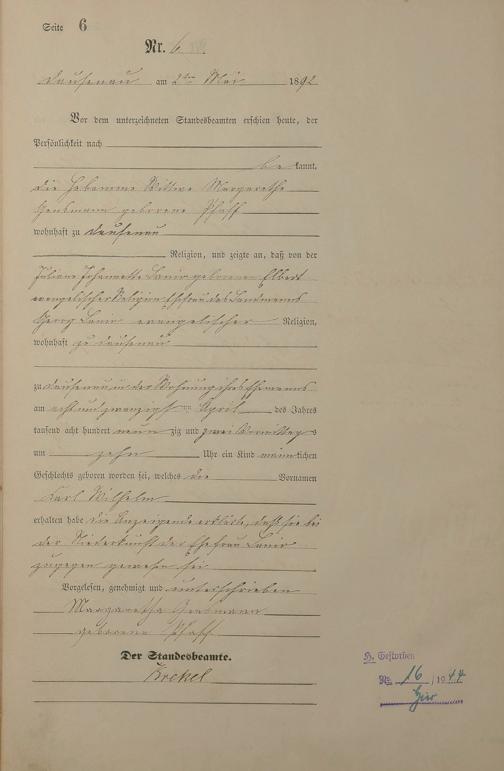 Seite 6
Nr. 6
Dausenau am 2ten Mai 1892
Vor dem unterzeichneten Standesbeamten erschien heute, der
Persönlichkeit nach
be kannt,
die Hebamme Wittwe Margarethe
geborene Pfaff
wohnhaft zu Dausenau
Religion, und zeigte an, daß von der
Juliane Johannette geborene Elbert
evangelischer Religion Ehefrau des Landmanns
Georg evangelischer Religion,
wohnhaft zu Dausenau
zu Dausenau in der Wohnung ihres Ehemanns
am acht und zwanzigsten April des Jahres
tausend acht hundert neun zig und zwei Vormittags
um zehn Uhr ein Kind männlichen
Geschlechts geboren worden sei, welches die Vornamen
Carl Wilhelm
erhalten habe die Anzeigende erklärte, daß sie bei
der Niederkunft der Ehefrau
zugegen gewesen sei
Vorgelesen, genehmigt und unterschrieben
Margaretha
geborene Pfaff
Der Standesbeamte.
Krekel
H. Gestorben
№ 16 /1944
hier